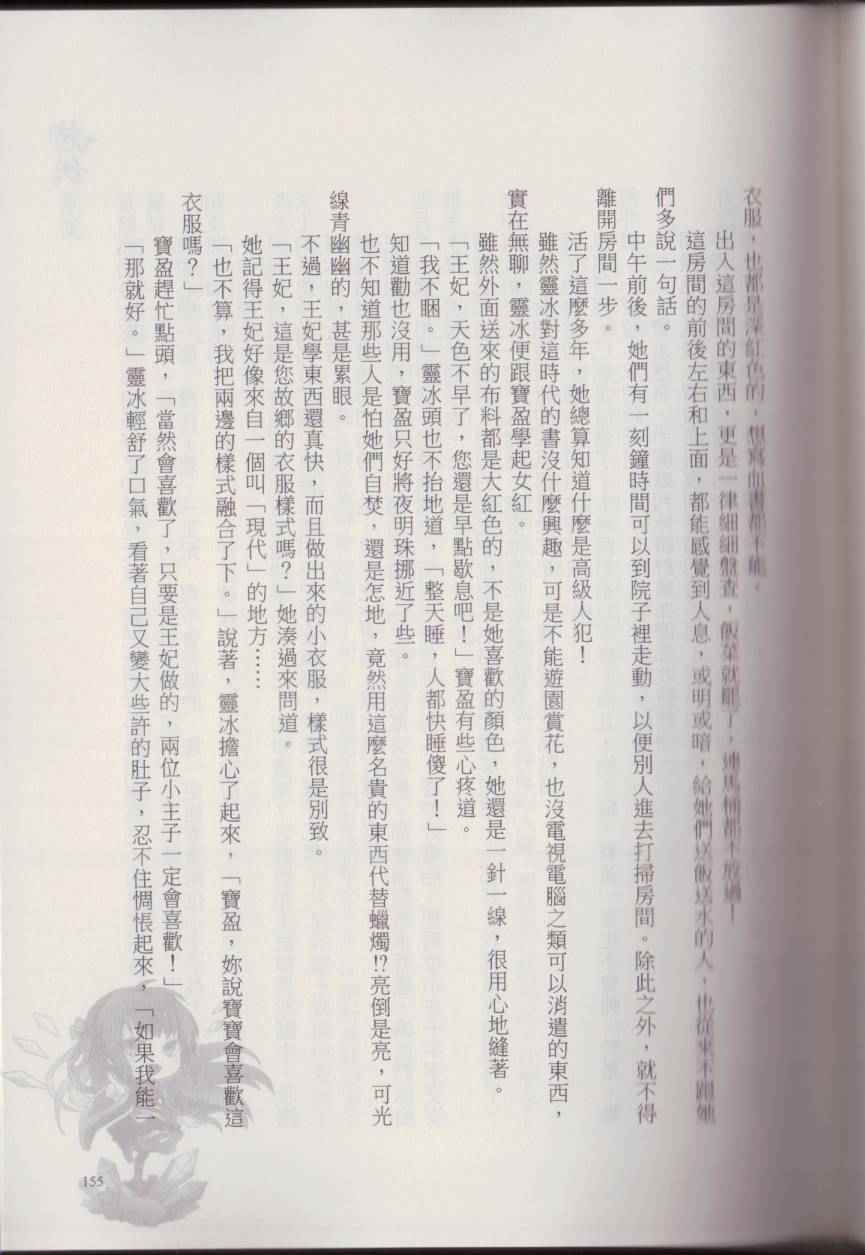 衣服，也都是深紅色的，想寫血書都不能。
出入這房間的東西，更是一律細細盤查，飯菜就罷了，連馬桶都不放過！
這房間的前後左右和上面，都能感覺到人息，或明或暗，給她們送飯送水的人，也從來不跟她
們多說一句話。
中午前後，她們有一刻鐘時間可以到院子裡走動，以便別人進去打掃房間。除此之外，就不得
離開房間一步。
活了這麼多年，她總算知道什麼是高級人犯！
雖然靈冰對這時代的書沒什麼興趣，可是不能遊園賞花，也沒電視電腦之類可以消遣的東西，
實在無聊，靈冰便跟寶盈學起女紅。
雖然外面送來的布料都是大紅色的，不是她喜歡的顏色，她還是一針一線，很用心地縫著。
「王妃，天色不早了，您還是早點歇息吧！」寶盈有些心疼道。
「我不睏。」靈冰頭也不抬地道，「整天睡，人都快睡傻了！」
知道勸也沒用，寶盈只好將夜明珠挪近了些。
也不知道那些人是怕她們自焚，還是怎地，竟然用這麼名貴的東西代替蠟燭!?亮倒是亮，可光
線青幽幽的，甚是累眼。
不過，王妃學東西還真快，而且做出來的小衣服，樣式很是別致。
「王妃，這是您故鄉的衣服樣式嗎？」她湊過來問道。
她記得王妃好像來自一個叫「現代」的地方……
「也不算，我把兩邊的樣式融合了下。」說著，靈冰擔心了起來，「寶盈，妳說寶寶會喜歡這
衣服嗎？」
寶盈趕忙點頭，「當然會喜歡了，只要是王妃做的，兩位小主子一定會喜歡！」
「那就好。」靈冰輕舒了口氣，看著自己又變大些許的肚子，忍不住惆悵起來，「如果我能一
155